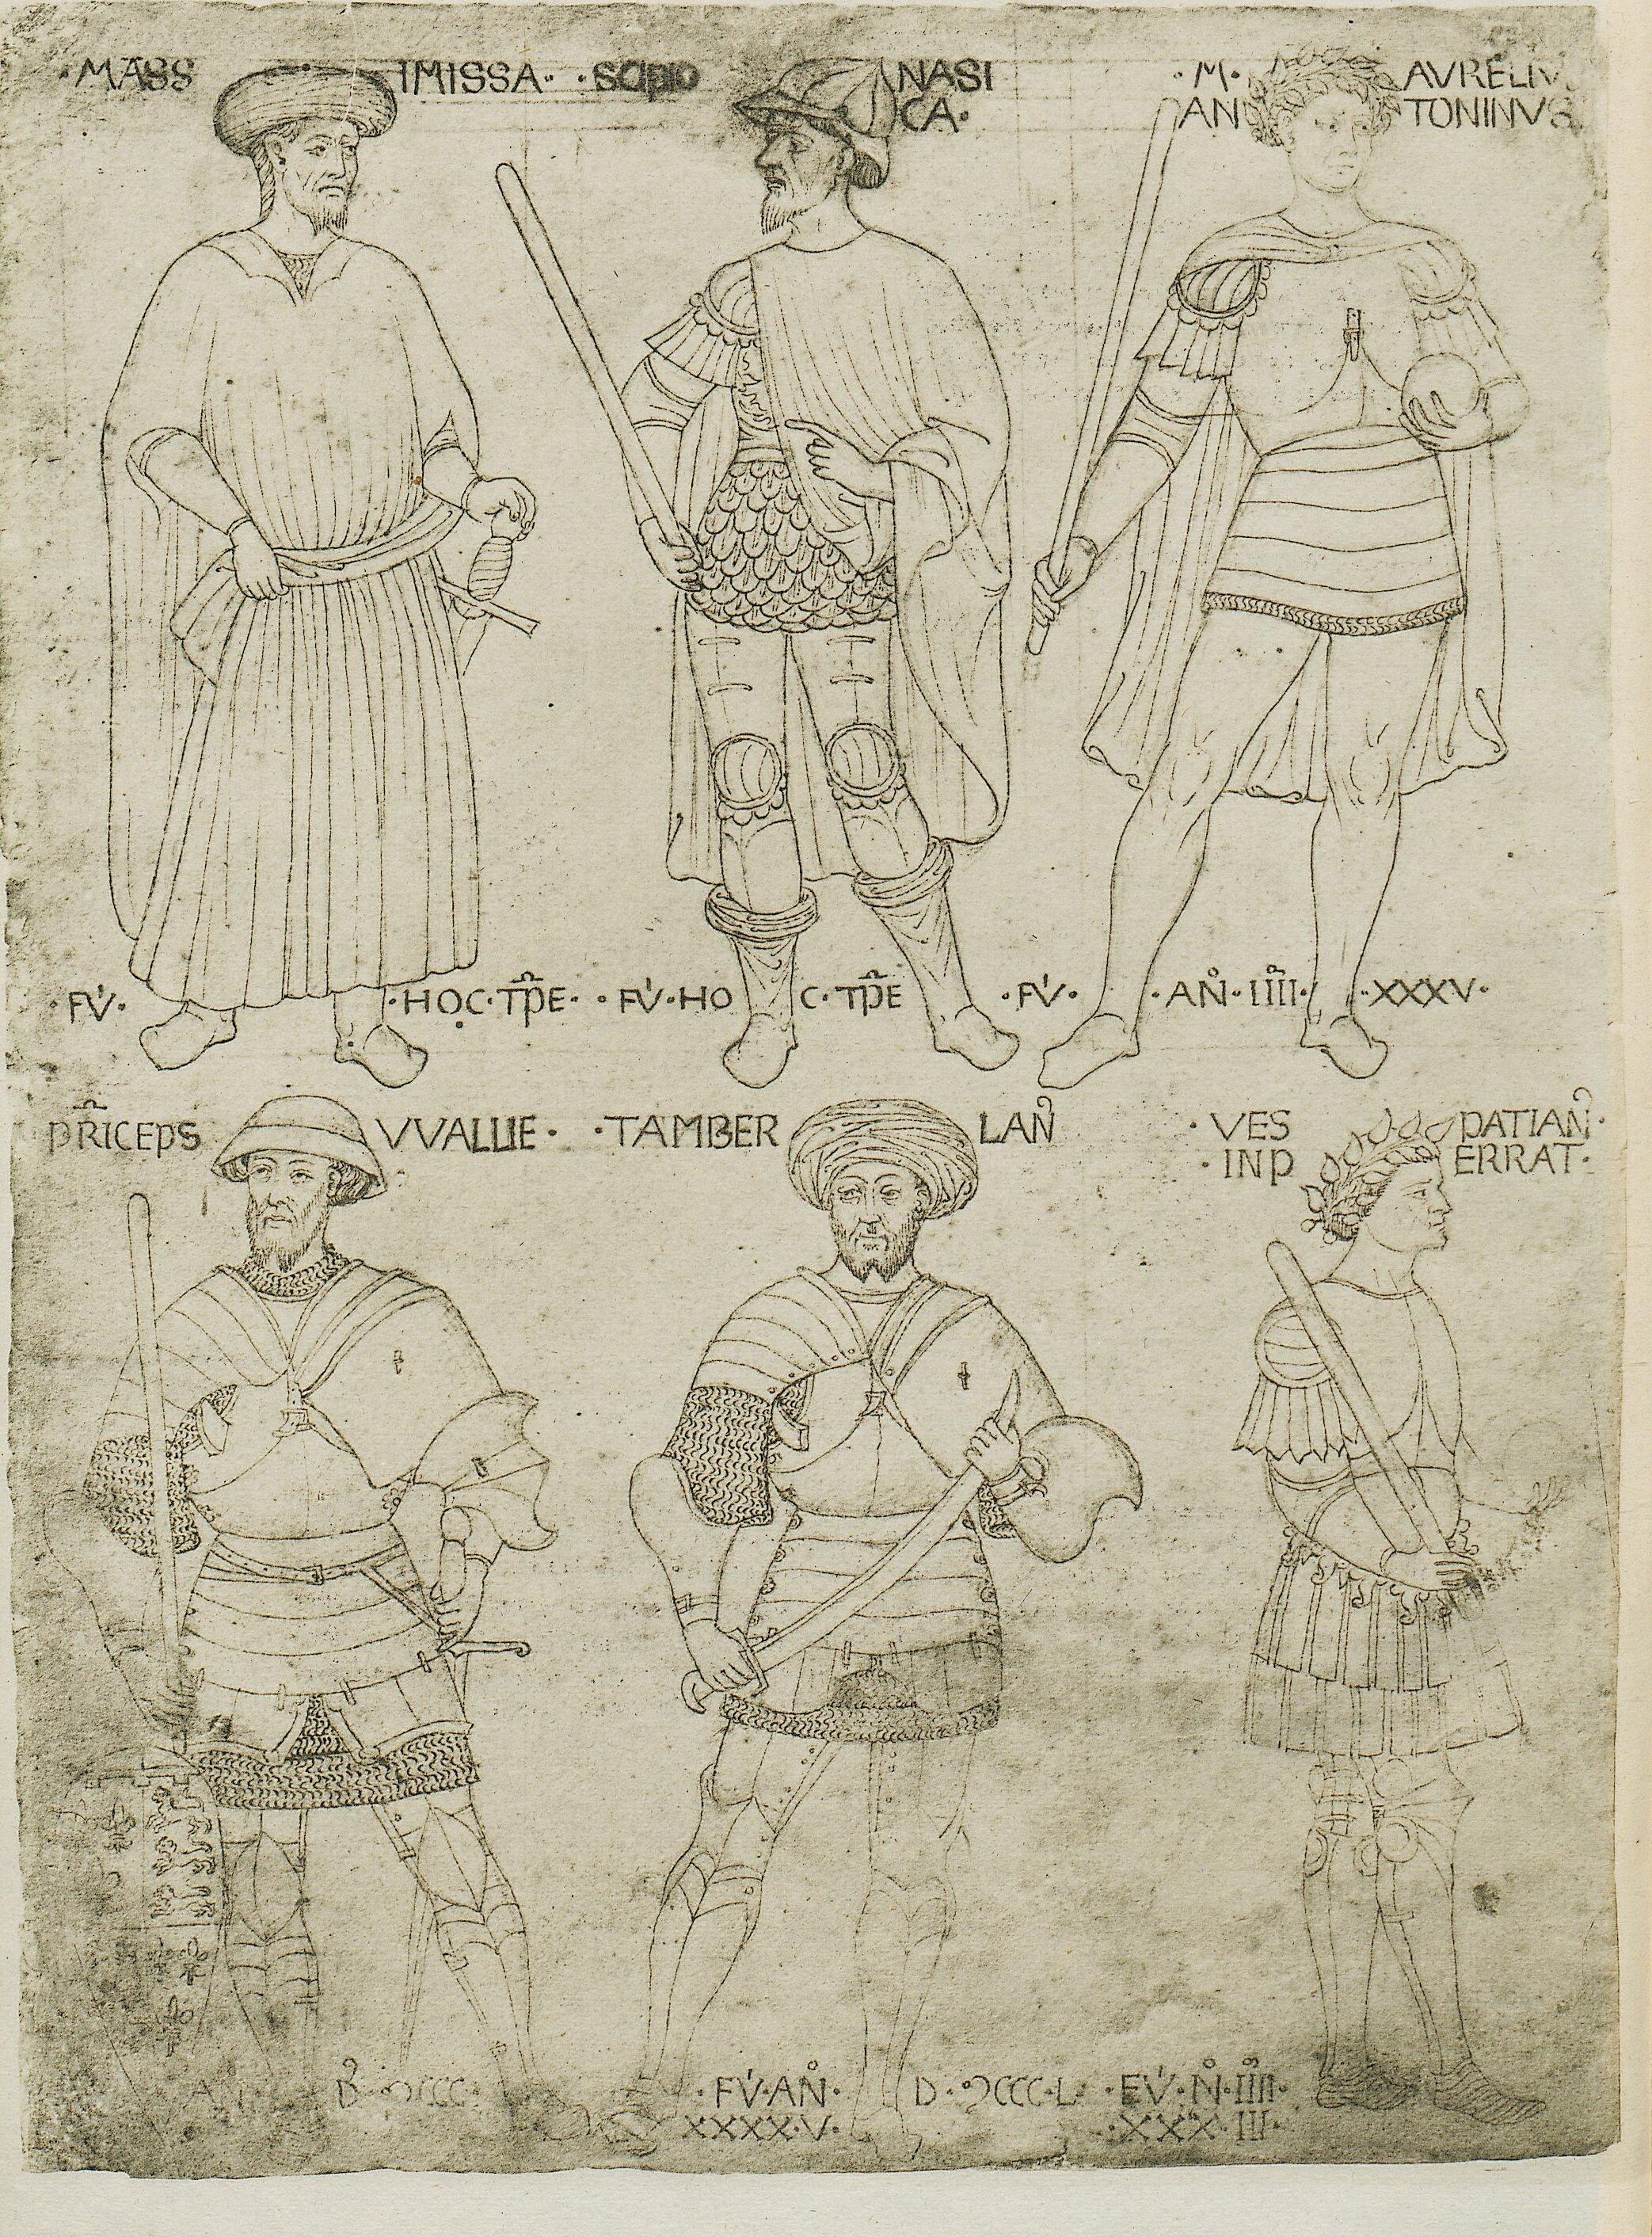 ·MASSIMISSA· ·SCIPIO NASI
CA·
·M· AVRELIV
ANTONINVS
·FV· ·HOC·TPE· ·FV·HOC·TPE ·FV· ·AN·IIII· ·XXXV·
PRICEPS VVALLIE· ·TAMBERLAN
·VES PATIAN·
·INP ERRAT·
·FV·AN· D·ↃCCC·L ·FV·N·IIII·
XXXX·V· ·XXX·III·